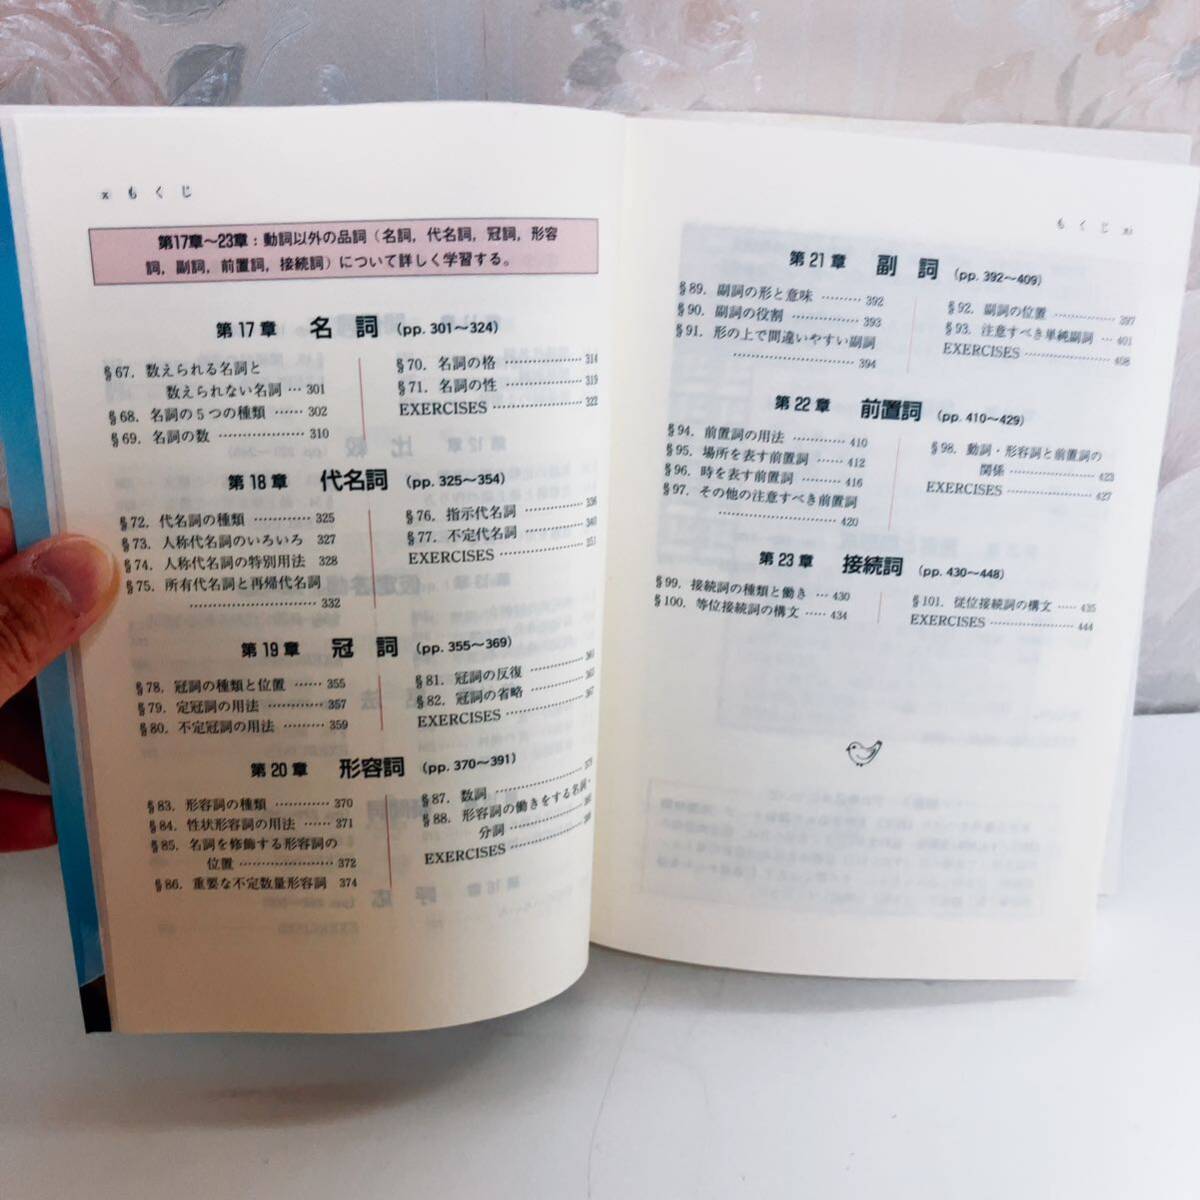 x もくじ
第17章〜23章：動詞以外の品詞（名詞，代名詞，冠詞，形容
詞，副詞，前置詞，接続詞）について詳しく学習する。
第17章 名詞 (pp. 301〜324)
§67. 数えられる名詞と
数えられない名詞 … 301
§68. 名詞の5つの種類 …… 302
§69. 名詞の数 ……………… 310
§70. 名詞の格 ……………… 314
§71. 名詞の性 ……………… 319
EXERCISES ……………… 322
第18章 代名詞 (pp. 325〜354)
§72. 代名詞の種類 ………… 325
§73. 人称代名詞のいろいろ 327
§74. 人称代名詞の特別用法 328
§75. 所有代名詞と再帰代名詞
……………………… 332
§76. 指示代名詞 …………… 336
§77. 不定代名詞 …………… 340
EXERCISES ……………… 351
第19章 冠詞 (pp. 355〜369)
§78. 冠詞の種類と位置 …… 355
§79. 定冠詞の用法 ………… 357
§80. 不定冠詞の用法 ……… 359
§81. 冠詞の反復 ……………
§82. 冠詞の省略 ……………
EXERCISES ……………… 367
第20章 形容詞 (pp. 370〜391)
§83. 形容詞の種類 ………… 370
§84. 性状形容詞の用法 …… 371
§85. 名詞を修飾する形容詞の
位置 ……………………… 372
§86. 重要な不定数量形容詞 374
§87. 数詞 …………………
§88. 形容詞の働きをする名詞・
分詞 ……………………
EXERCISES ………………
もくじ xi
第21章 副詞 (pp. 392〜409)
§89. 副詞の形と意味 ……… 392
§90. 副詞の役割 …………… 393
§91. 形の上で間違いやすい副詞
……………………… 394
§92. 副詞の位置 …………… 397
§93. 注意すべき単純副詞 … 401
EXERCISES ……………… 408
第22章 前置詞 (pp. 410〜429)
§94. 前置詞の用法 ………… 410
§95. 場所を表す前置詞 …… 412
§96. 時を表す前置詞 ……… 416
§97. その他の注意すべき前置詞
……………………… 420
§98. 動詞・形容詞と前置詞の
関係 ……………………… 423
EXERCISES ……………… 427
第23章 接続詞 (pp. 430〜448)
§99. 接続詞の種類と働き … 430
§100. 等位接続詞の構文 …… 434
§101. 従位接続詞の構文 …… 435
EXERCISES ……………… 444